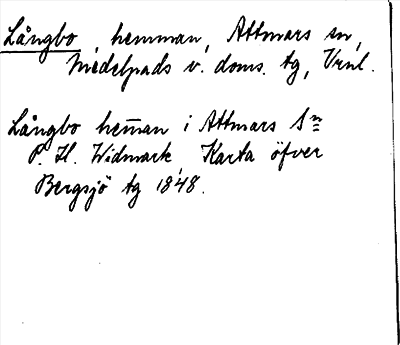 Långbo, hemman, Attmars sn,
Medelpads v. doms. tg, Vrnl.
Långbo hem̅an i Attmars Sn
P. H. Widmark Karta öfver
Bergsjö tg 1848.